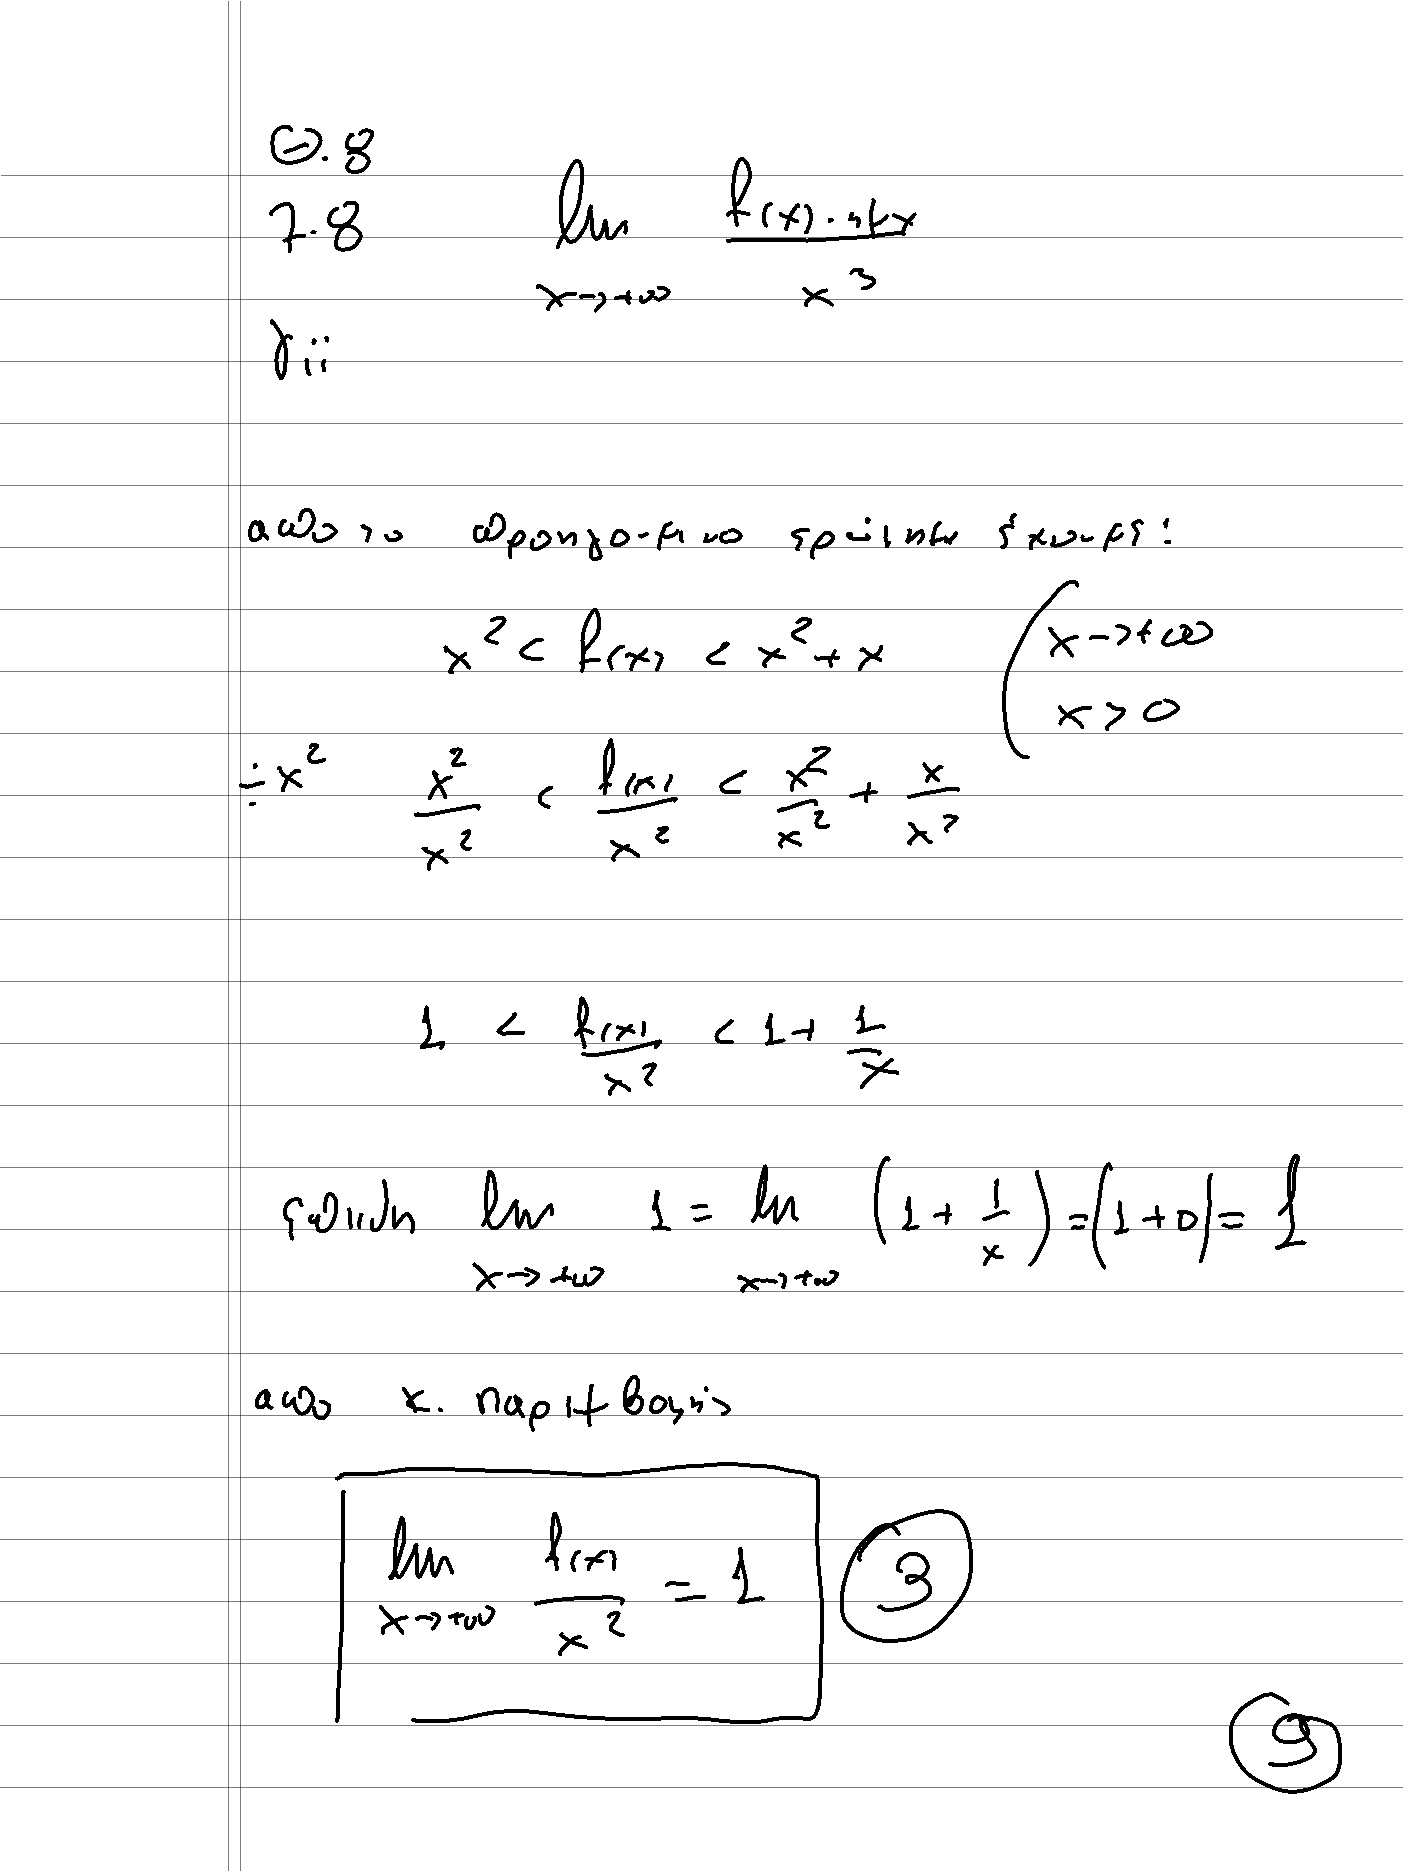 Θ.8
7.8 lim f(x)·ημx / x³
x→+∞
γii
απο το προηγούμενο ερώτημα έχουμε:
x² < f(x) < x² + x (x→+∞
x>0
÷x² x²/x² < f(x)/x² < x²/x² + x/x²
1 < f(x)/x² < 1 + 1/x
επειδη lim 1 = lim (1 + 1/x) = (1+0) = 1
x→+∞ x→+∞
απο κ. παρεμβολής
lim f(x)/x² = 1 3
x→+∞
9